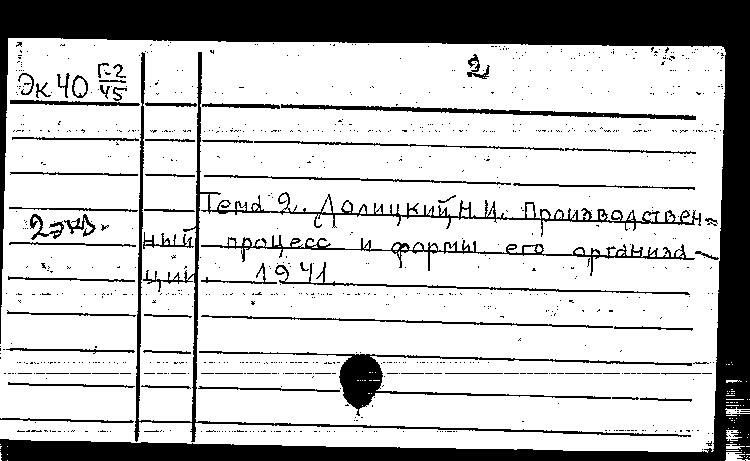 2
Эк 40 Г-2
45
Тема 2. Долицкий Н.И. Производствен=
2 экз.
ный процесс и формы его организа-
ции. 1941.